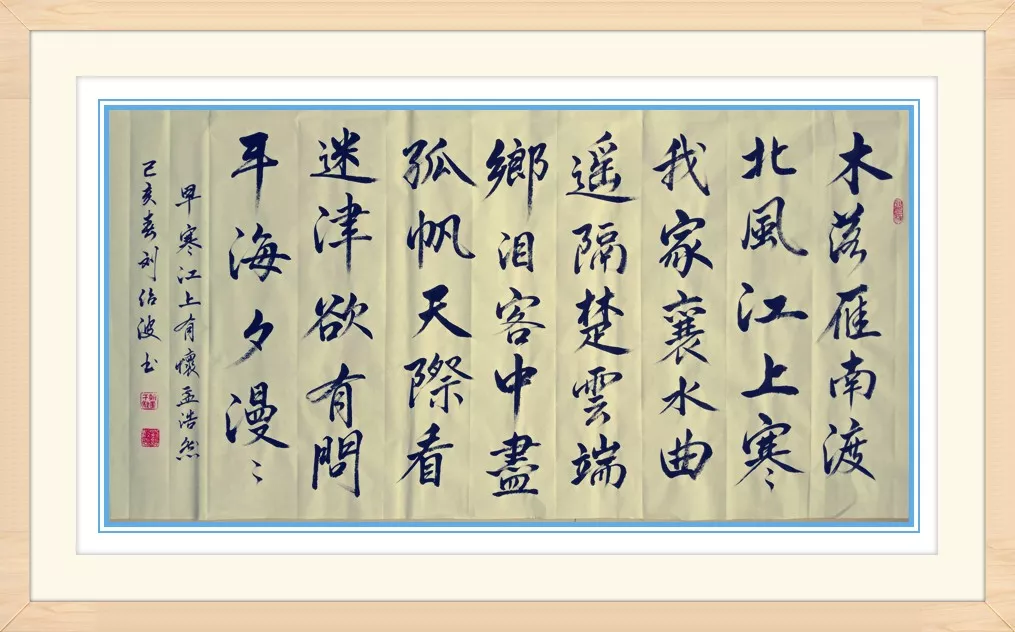 木落雁南渡
北風江上寒
我家襄水曲
遥隔楚雲端
鄉泪客中盡
孤帆天際看
迷津欲有問
平海夕漫〻
早寒江上有懷孟浩然
己亥春刘治波书